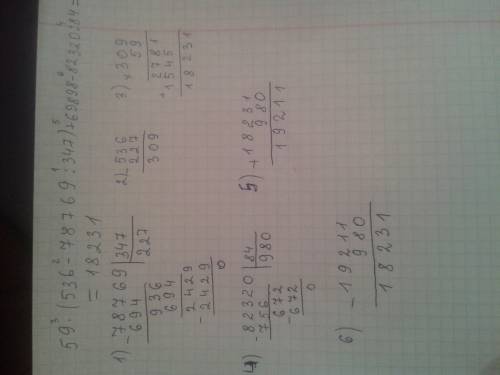 59³·(536²-78769¹:347)⁵+69898⁶-82320:84⁴=
= 18231
1) -78769 |347
694 |227
936
694
-2429
2429
0
2) -536
227
309
3) ×309
59
+2781
1545
18231
4) -82320 |84
756 |980
-672
672
0
5) +18231
980
19211
6) -19211
980
18231